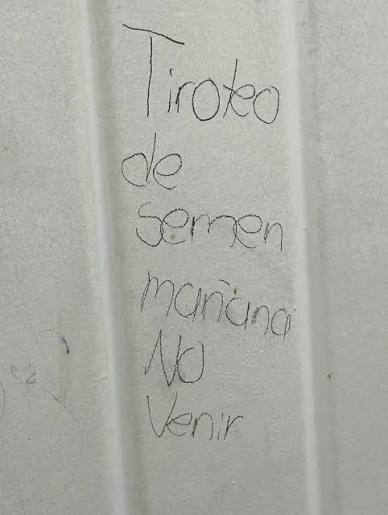 Tiroteo
de
semen
mañana
NO
Venir